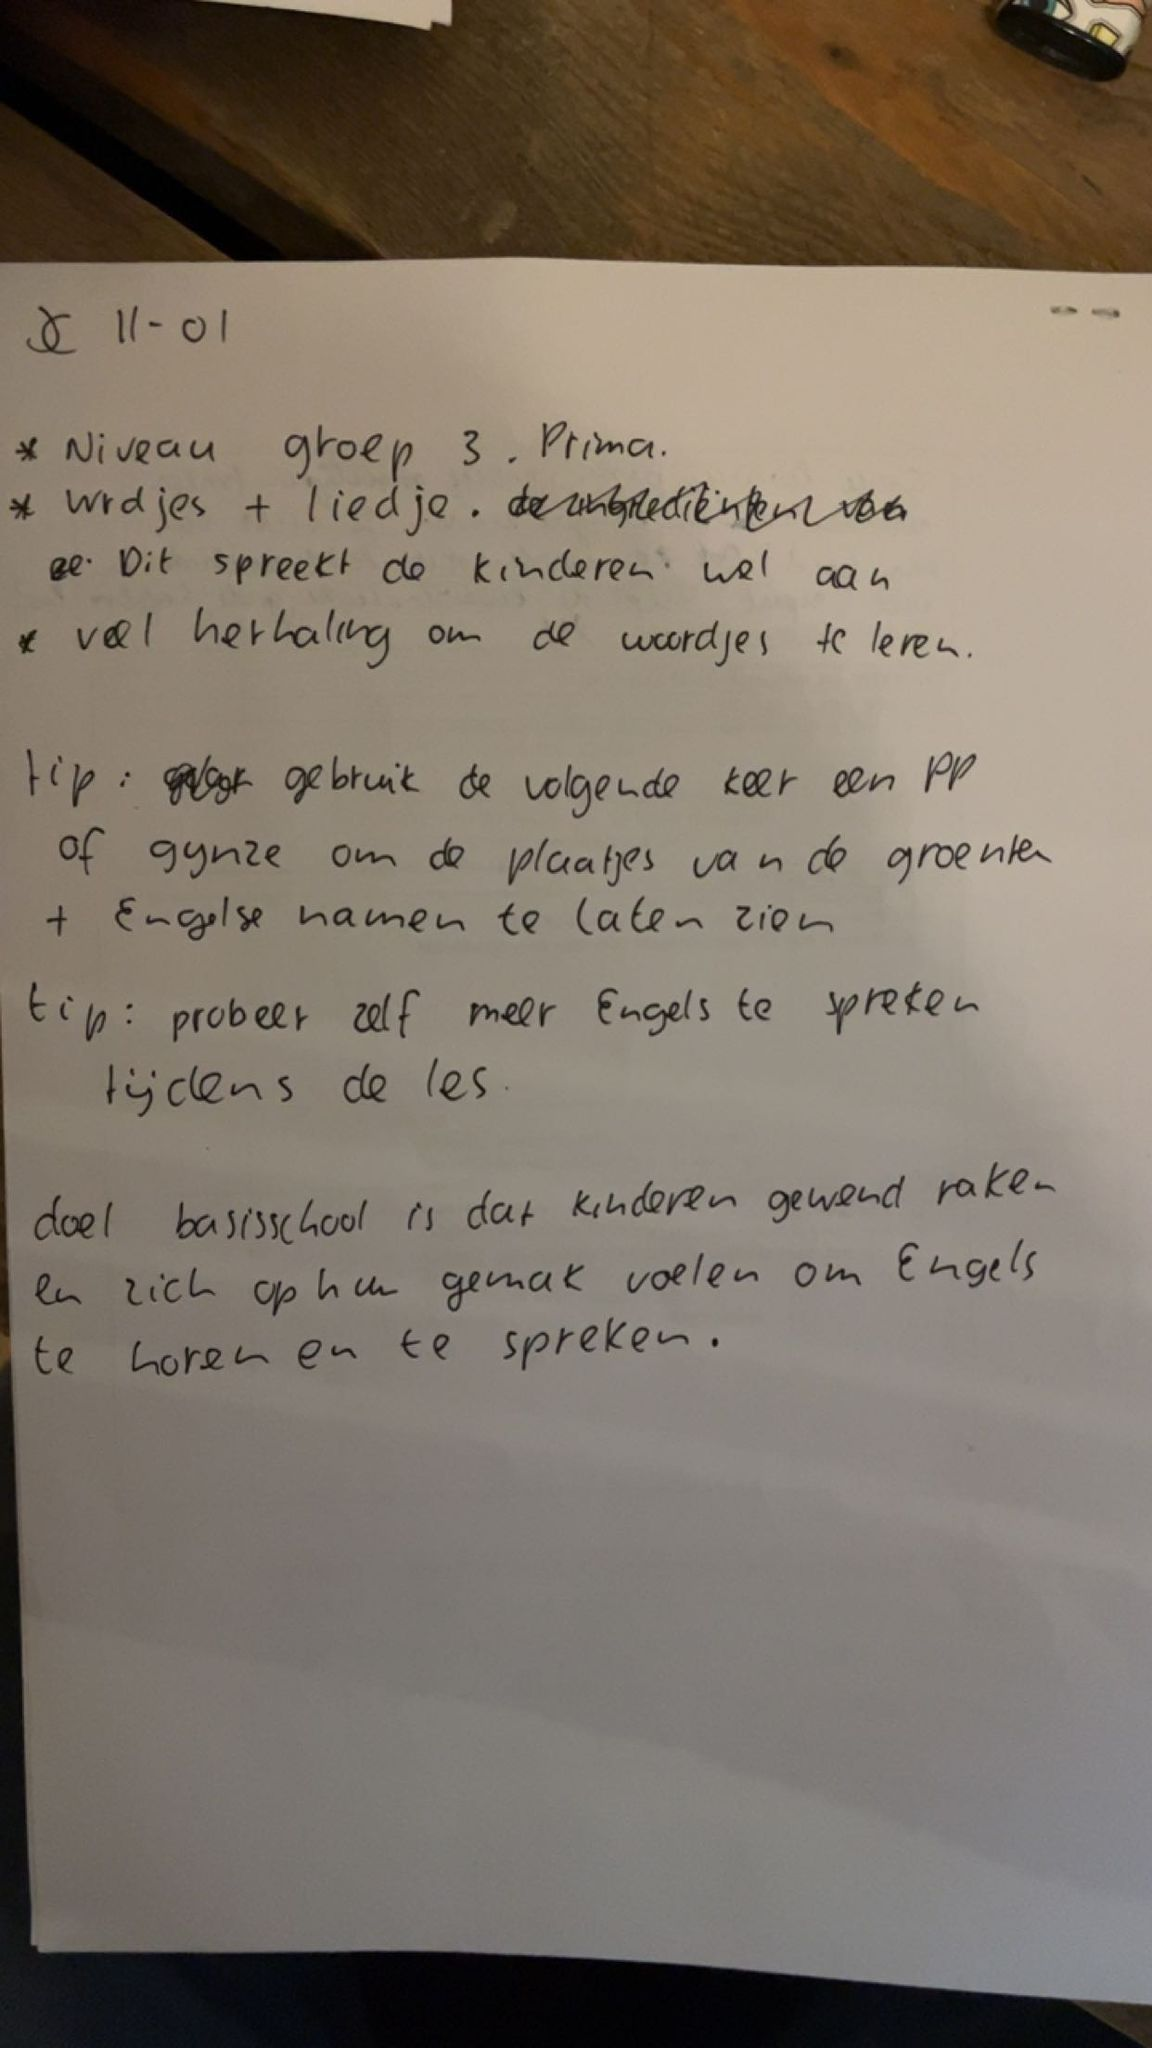 11-01
* Niveau groep 3. Prima.
* wrdjes + liedje.
Dit spreekt de kinderen wel aan
* veel herhaling om de woordjes te leren.
tip: gebruik de volgende keer een PP
of gynze om de plaatjes van de groenten
+ Engelse namen te laten zien
tip: probeer zelf meer Engels te spreken
tijdens de les.
doel basisschool is dat kinderen gewend raken
en zich op hun gemak voelen om Engels
te horen en te spreken.